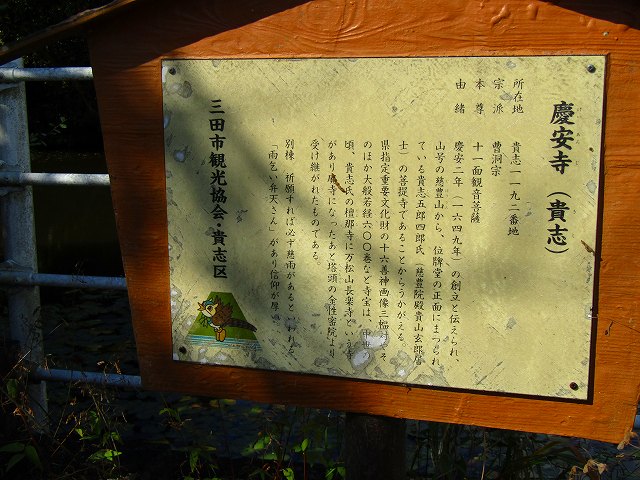 慶安寺（貴志）
けいあんじ
所在地　貴志一一九二番地
宗派　曹洞宗
本尊　十一面観音菩薩
由緒　慶安二年（一六四九年）の創立と伝えられ、
山号の慈豊山から、位牌堂の正面にまつられ
ている貴志五郎四郎氏（慈豊院殿貴山玄郎居
士）の菩提寺であることからうかがえる。
県指定重要文化財の十六善神画像三幅対、そ
のほか大般若経六〇〇巻など寺宝は、中世の
頃、貴志氏の檀那寺に万松山長楽寺という寺
があり廃寺になったあと塔頭の金性密院より
受け継がれたものである。
別棟　祈願すれば必ず慈雨があるといわれる、
「雨乞い弁天さん」があり信仰が厚い。
三田市観光協会・貴志区